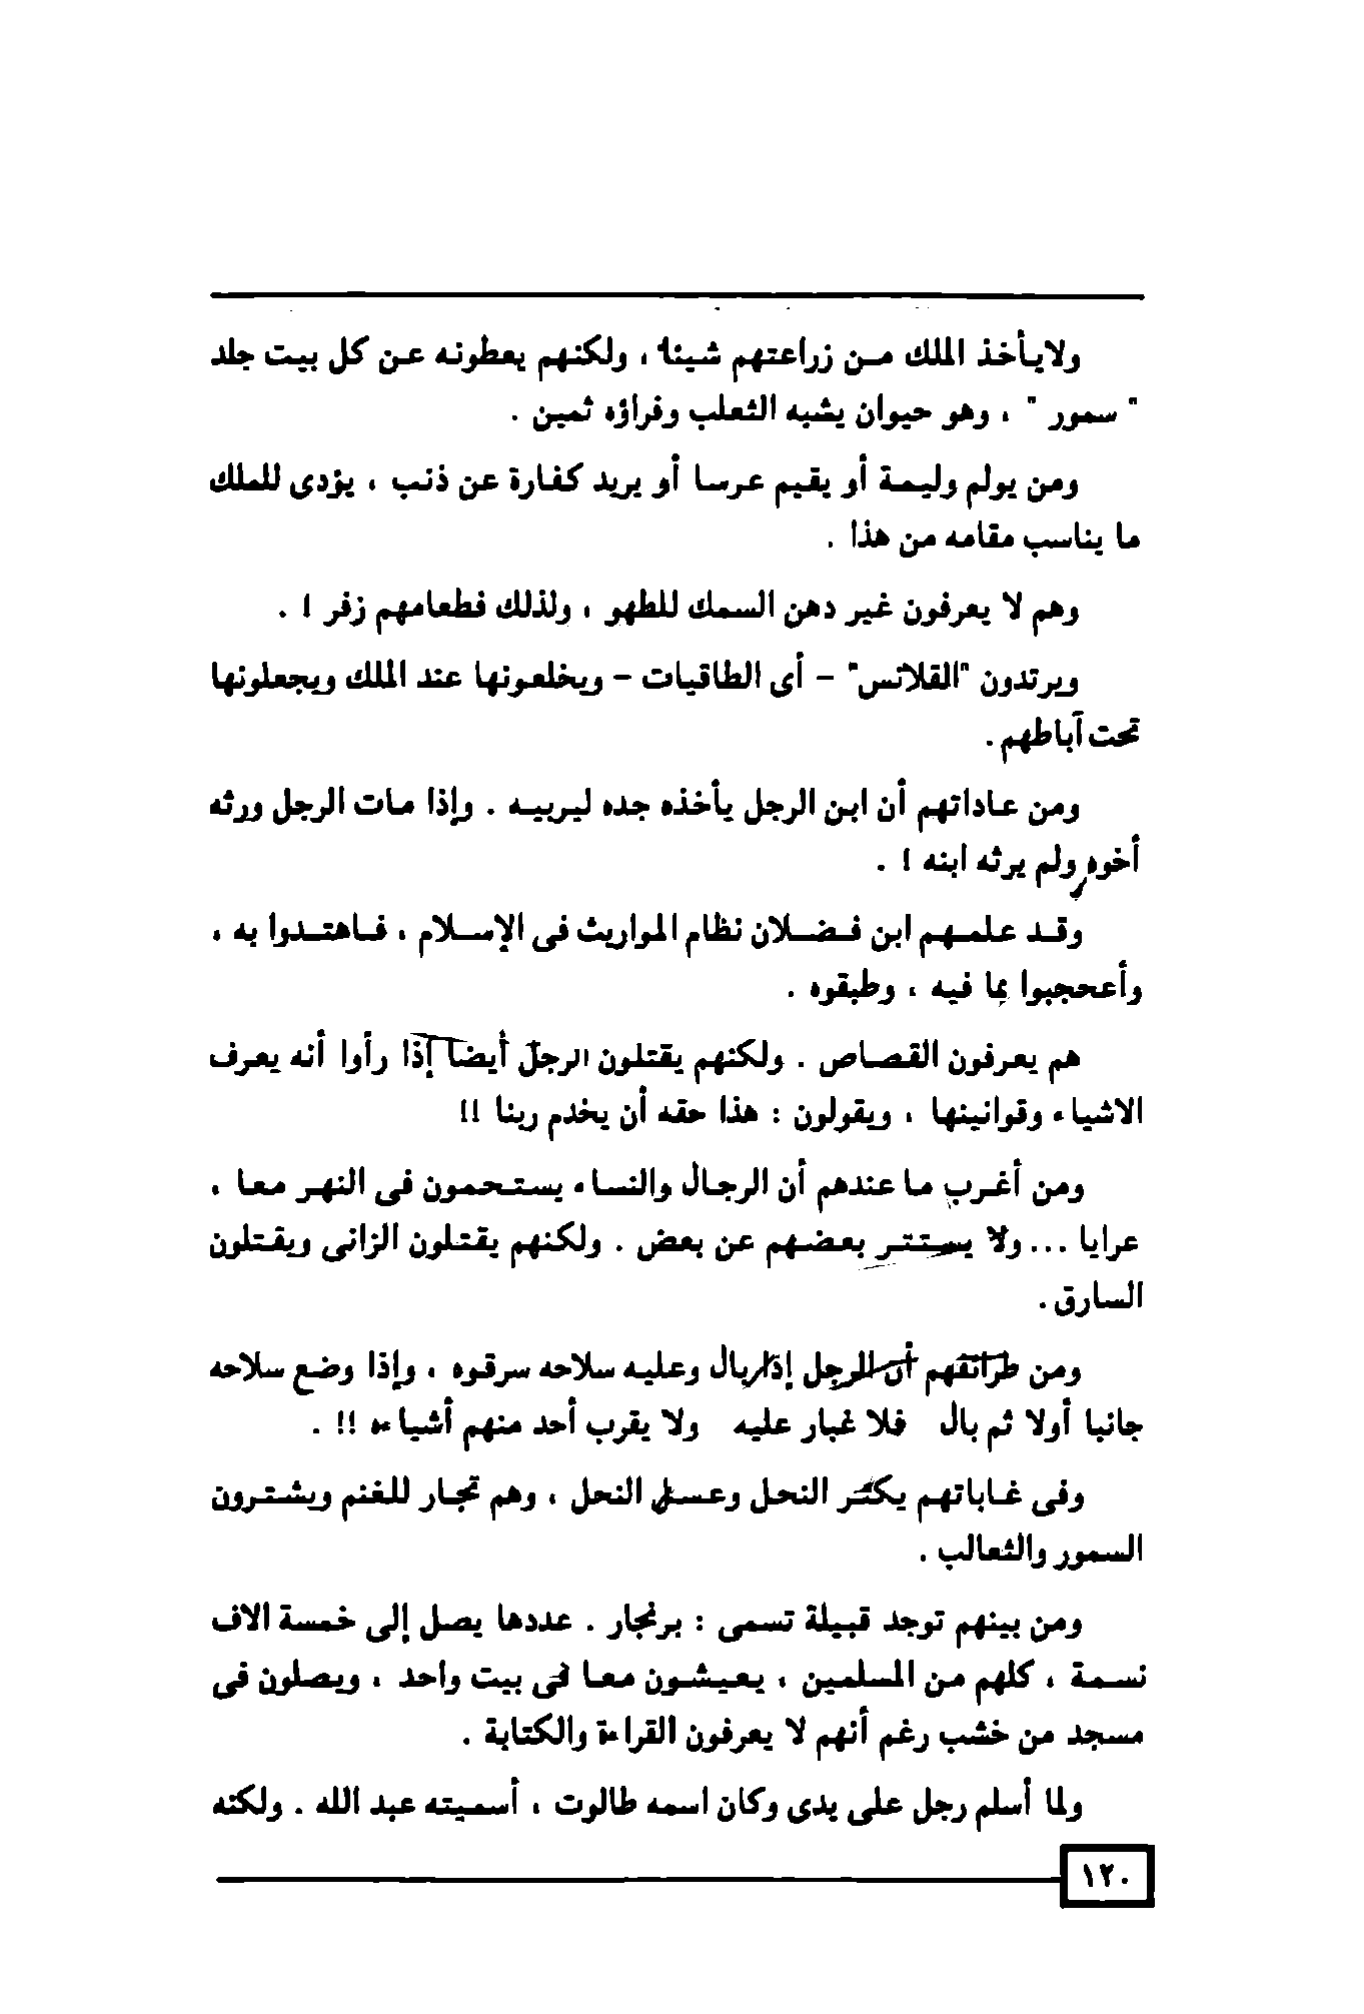 ولايأخذ الملك من زراعتهم شيئا ، ولكنهم يعطونه عن كل بيت جلد
" سمور " ، وهو حيوان يشبه الثعلب وفراؤه ثمين .
ومن يولم وليمة أو يقيم عرسا أو يريد كفارة عن ذنب ، يؤدى للملك
ما يناسب مقامه من هذا .
وهم لا يعرفون غير دهن السمك للطهو ، ولذلك فطعامهم زفر ! .
ويرتدون "القلانس" – أى الطاقيات – ويخلعونها عند الملك ويجعلونها
تحت آباطهم .
ومن عاداتهم أن ابن الرجل يأخذه جده ليربيه . وإذا مات الرجل ورثه
أخوه ولم يرثه ابنه ! .
وقد علمهم ابن فضلان نظام المواريث فى الإسلام ، فاهتدوا به ،
وأعحجبوا بما فيه ، وطبقوه .
هم يعرفون القصاص . ولكنهم يقتلون الرجل أيضا إذا رأوا أنه يعرف
الاشياء وقوانينها ، ويقولون : هذا حقه أن يخدم ربنا !!
ومن أغرب ما عندهم أن الرجال والنساء يستحمون فى النهر معا ،
عرايا ... ولا يستتر بعضهم عن بعض . ولكنهم يقتلون الزانى ويقتلون
السارق .
ومن طرائفهم أن الرجل إذا بال وعليه سلاحه سرقوه ، وإذا وضع سلاحه
جانبا أولا ثم بال فلا غبار عليه ولا يقرب أحد منهم أشياءه !! .
وفى غاباتهم يكثر النحل وعسل النحل ، وهم تجار للغنم ويشترون
السمور والثعالب .
ومن بينهم توجد قبيلة تسمى : برنجار . عددها يصل إلى خمسة الاف
نسمة ، كلهم من المسلمين ، يعيشون معا فى بيت واحد ، ويصلون فى
مسجد من خشب رغم أنهم لا يعرفون القراءة والكتابة .
ولما أسلم رجل على يدى وكان اسمه طالوت ، أسميته عبد الله . ولكنه
١٢٠